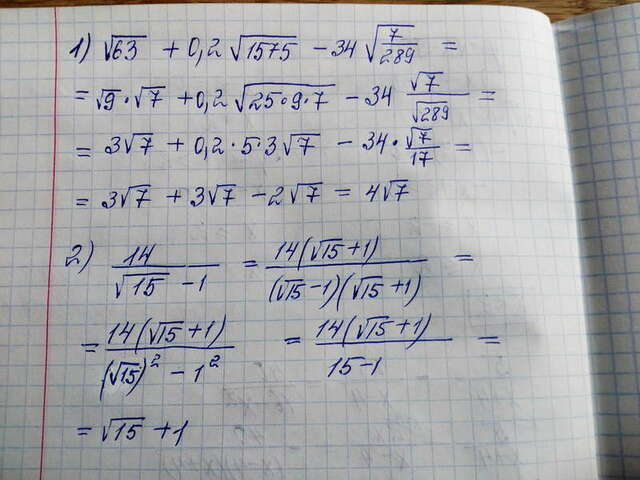 1) √63 + 0,2 √1575 − 34 √(7/289) =
= √9 · √7 + 0,2 √(25·9·7) − 34 √7/√289 =
= 3√7 + 0,2 · 5 · 3√7 − 34 · √7/17 =
= 3√7 + 3√7 − 2√7 = 4√7
2) 14/(√15 − 1) = 14(√15 + 1)/((√15 − 1)(√15 + 1)) =
= 14(√15 + 1)/((√15)² − 1²) = 14(√15 + 1)/(15 − 1) =
= √15 + 1